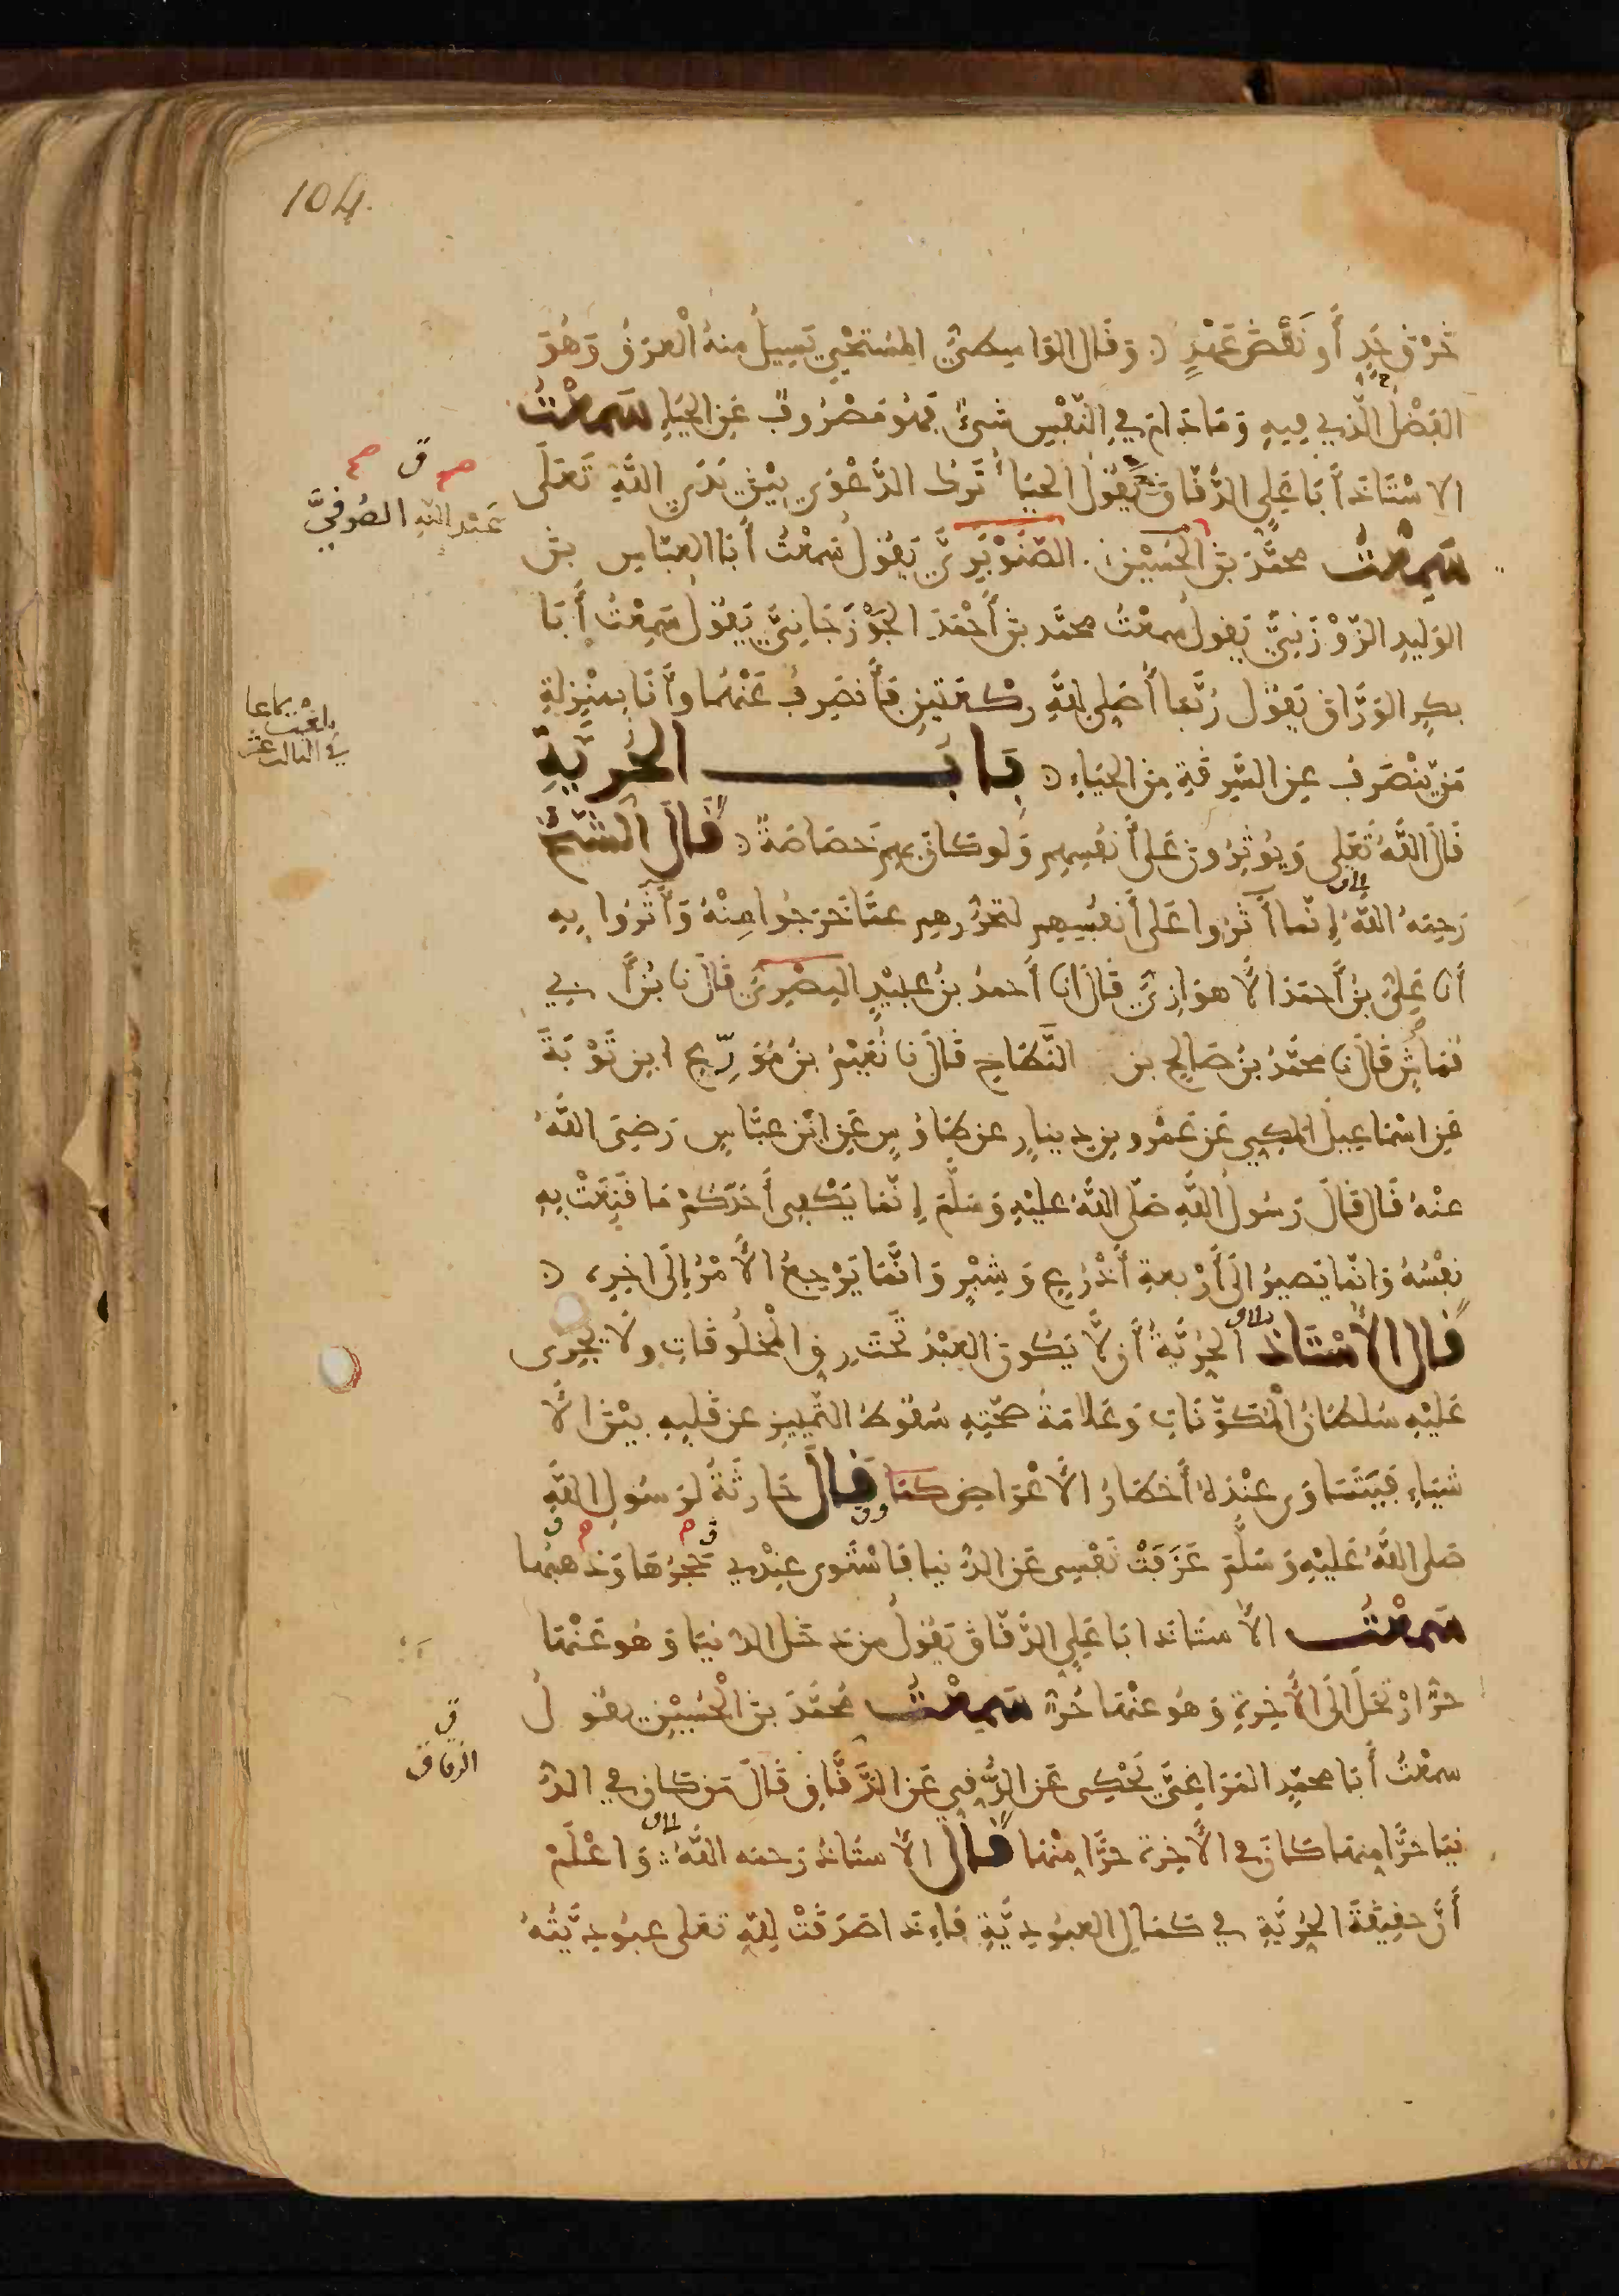 104.
خَرْقِ حَدٍّ أَو نَقْضِ عَهْدٍ وَقَال الوَاسِطيُّ المُسْتَحْيِي يَسِيلُ مِنهُ الْعَرَقُ وَهُوَ
الفَضْلُ الَّذِي فِيهِ وَمَا دَامَ فِي النَّفْسِ شَيْءٌ فَهُوَ مَصْرُوفٌ عَنِ الحَيَاءِ سَمِعْتُ
الاسْتَاذَ أَبَا عَلِي الدَّقَّاقَ يَقُولُ الحَيَاءُ تَركُ الدَّعْوَى بَيْنَ يَدَيِ اللَّهِ تَعَلَى
عَبْدَ اللهِ الصُوفِيَّ
سَمِعْتُ محمَّدَ بنَ الحُسَيْنِ الصَّنَوْبَرِيَّ يَقُولُ سَمِعْتُ أَبَا العبَّاسِ بنَ
الوَلِيدِ الزَّوْزَنِيَّ يَقولُ سمعْتُ محمَّد بنَ أَحْمَدَ الجَوْزَجَانِيَّ يَقُولُ سَمِعْتُ أَبَا
بكرٍ الوَرَّاقَ يَقُولُ رُبَّمَا أُصَلِي لِلَّهِ ركعَتَيْنِ فَأَنصَرِفُ عَنْهُمَا وأَنَا بِمنْزِلَةِ
مَن يَنْصَرِفُ عَنِ السَّرِقَةِ مِنَ الحَيَاءِ بَابُ الحُرِيَّةِ
قَالَ اللَّهُ تَعَلَى وَيُوثِرُونَ عَلَى أَنفُسِهِم وَلَو كَانَ بِهِم خَصَاصَةٌ قَالَ الشَّيْخُ
رَحِمَهُ اللَّهُ إِنَّمَا آثَرُوا عَلَى أَنفُسِهِم لتَحَرُّرِهِم عمَّا خَرَجُوا مِنْهُ وَآثَرُوا بِهِ
أَنا عَلِيُّ بنُ أَحمَدَ الأَهوَازِيُّ قَالَ أَنَا أَحمَدُ بنُ عُبَيْدٍ البصْرِيُّ قَالَ نَا بنُ أَبِي
قُمَاشٍ قَالَ نَا محمَّدُ بنُ صَالِحٍ بن النَّطَّاحِ قَالَ نَا نُعَيْمُ بنُ مُوَرِّعِ ابنِ تَوْبَةَ
عَنِ اسْمَاعِيلَ المكِّي عَن عَمْرو بنِ دِينارٍ عن طَاوُسٍ عَنِ ابْنِ عبَّاسٍ رَضِيَ اللَّهُ
عنْهُ قَالَ قَالَ رَسُولُ اللَّهِ صَلَّى اللهُ علَيْهِ وَسَلَّمَ إِنَّمَا يَكْفِى أَحَدَكُمْ مَا قَنِعَتْ بِهِ
نفْسُهُ وَإِنَّمَا يَصِيرُ إِلَى أَرْبعَةِ أَذْرُعٍ وَشِبْرٍ وَإِنَّمَا يَرْجِعُ الأَمْرُ إِلَى اخِرٍ
قَال الأُسْتَاذ الحُرِّيَّةُ أَن لاَّ يَكُونَ العَبْدُ تَحْتَ رِقِّ الْمَخْلُوقَاتِ ولاَ يجْرِى
عَلَيْهِ سُلطَانُ الْمُكَوَّنَاتِ وَعَلامَةُ صِحَّتِهِ سُقُوطُ التَّمْيِيزِ عن قَلبِهِ بَيْنَ الأَ
شْيَاءِ فَيَتَسَاوَى عِنْدَهُ أَخطَارُ الأَعْرَاضِ كَمَا قَالَ حَارِثَةُ لِرَسُولِ اللَّهِ
صَلى اللهُ عَلَيْهِ وَسَلَّمَ عَزَفَتْ نَفْسِى عَنِ الدُّنيَا فَاسْتَوى عِنْدِي حَجَرُهَا وَذَهبُهَا
سَمِعْتُ الأُستَاذ ابَا عَلِي الدَّقَّاقَ يَقُولُ مَن دَخَلَ الدُّنيَا وَهُوَ عَنْهَا
حرٌّ ارْتَحَلَ الَى الأَخِرَةِ وَهُوَ عنْهَا حُرٌّ سَمِعْتُ مُحمَّدَ بنَ الْحُسَيْنِ يقُولُ
سمعْتُ أَبَا محمَّدٍ المَرَاغِيَّ يَحْكِى عَنِ الرَّقِي عَنِ الدَّقَّاقِ قَالَ مَن كَانَ فِي الدُّ
ق
الزقاق
نيَا حُرًّا مِنهَا كَانَ فِي الأَخِرَة حُرًّا مِنْهَا قَالَ الأُستَاذُ رَحمَه اللَّهُ وَاعْلَمْ
أَنَّ حقِيقَةَ الحُرِّيَّةِ فِي كمَالِ العبُودِيَّةِ فَإِذَا صَدَقَتْ لِلّهِ تعَلَى عبُودِيَّتُهُ